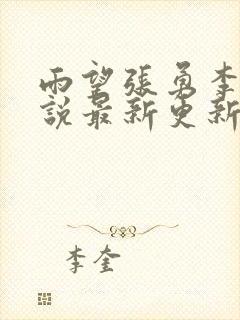 雨望張勇李
說最新更新
李奎